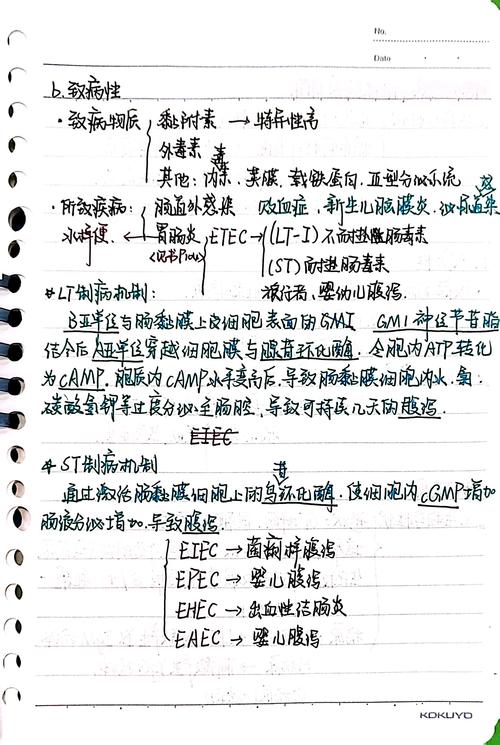 No.
Date
b.致病性
·致病物质 黏附素 → 特异性高
外毒素
毒
其他:内素、荚膜、载铁蛋白、Ⅲ型分泌系统
·所致疾病: 肠道外感染 败血症、新生儿脑膜炎、泌尿道感染
水样便. ← 胃肠炎 ETEC → (LT-I) 不耐热肠毒素
(ST) 耐热肠毒素
旅行者、婴幼儿腹泻.
*LT制病机制:
B亚单位与肠黏膜上皮细胞表面的GM1 GM1神经节苷脂
结合后A亚单位穿越细胞膜与腺苷环化酶.令胞内ATP转化
为cAMP.胞质内cAMP水平变高后,导致肠黏膜细胞内水、氯、
碳酸氢钾等过度分泌至肠腔,导致可持续几天的腹泻.
EIEC
*ST制病机制
苷
通过激活肠黏膜细胞上的鸟环化酶.使细胞内cGMP增加
肠液分泌增加.导致腹泻
EIEC → 菌痢样腹泻
EPEC → 婴儿腹泻
EHEC → 出血性结肠炎
EAEC → 婴儿腹泻
KOKUYO